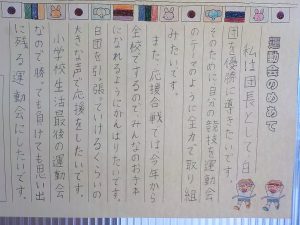 運動会のめあて
私は団長として白
団を優勝に導きたいです。
そのために自分の競技を運動会
のテーマのように全力で取り組
みたいです。
また、応援合戦では今年から
全校でするので、みんなのお手本
になれるようにがんばりたいです。
白団を引っ張っていけるくらいの
大きな声で応援をしたいです。
小学校生活最後の運動会
なので、勝っても負けても思い出
に残る運動会にしたいです。